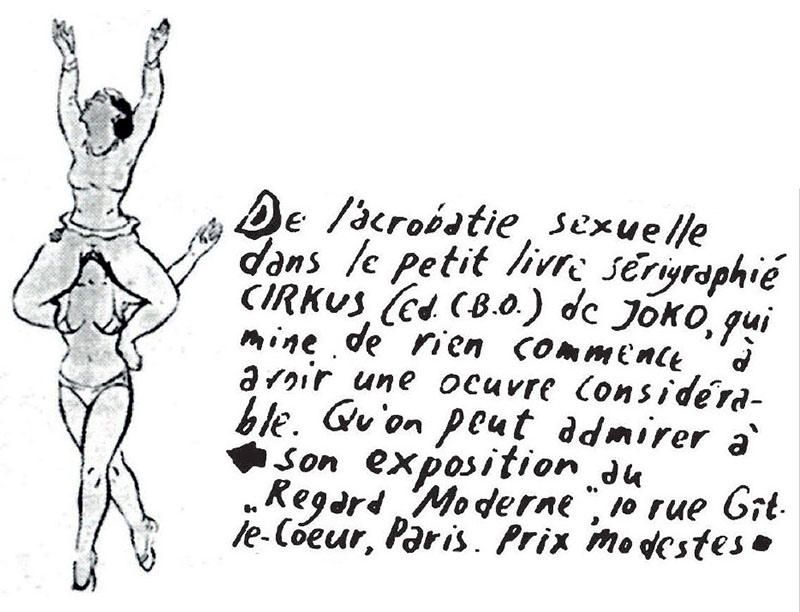 De l'acrobatie sexuelle
dans le petit livre sérigraphié
CIRKUS (Ed. C.B.O.) de JOKO, qui
mine de rien commence à
avoir une oeuvre considéra-
ble. Qu'on peut admirer à
son exposition au
„Regard Moderne", 10 rue Gît-
le-Coeur, Paris. Prix modestes